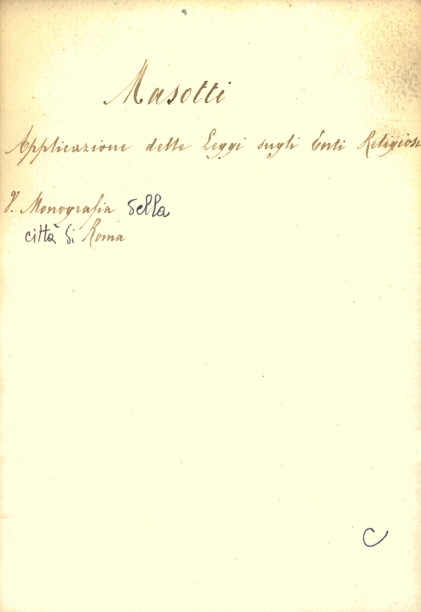 Masotti
Applicazione delle Leggi sugli Enti Religiosi
V. Monografia della
città di Roma
C